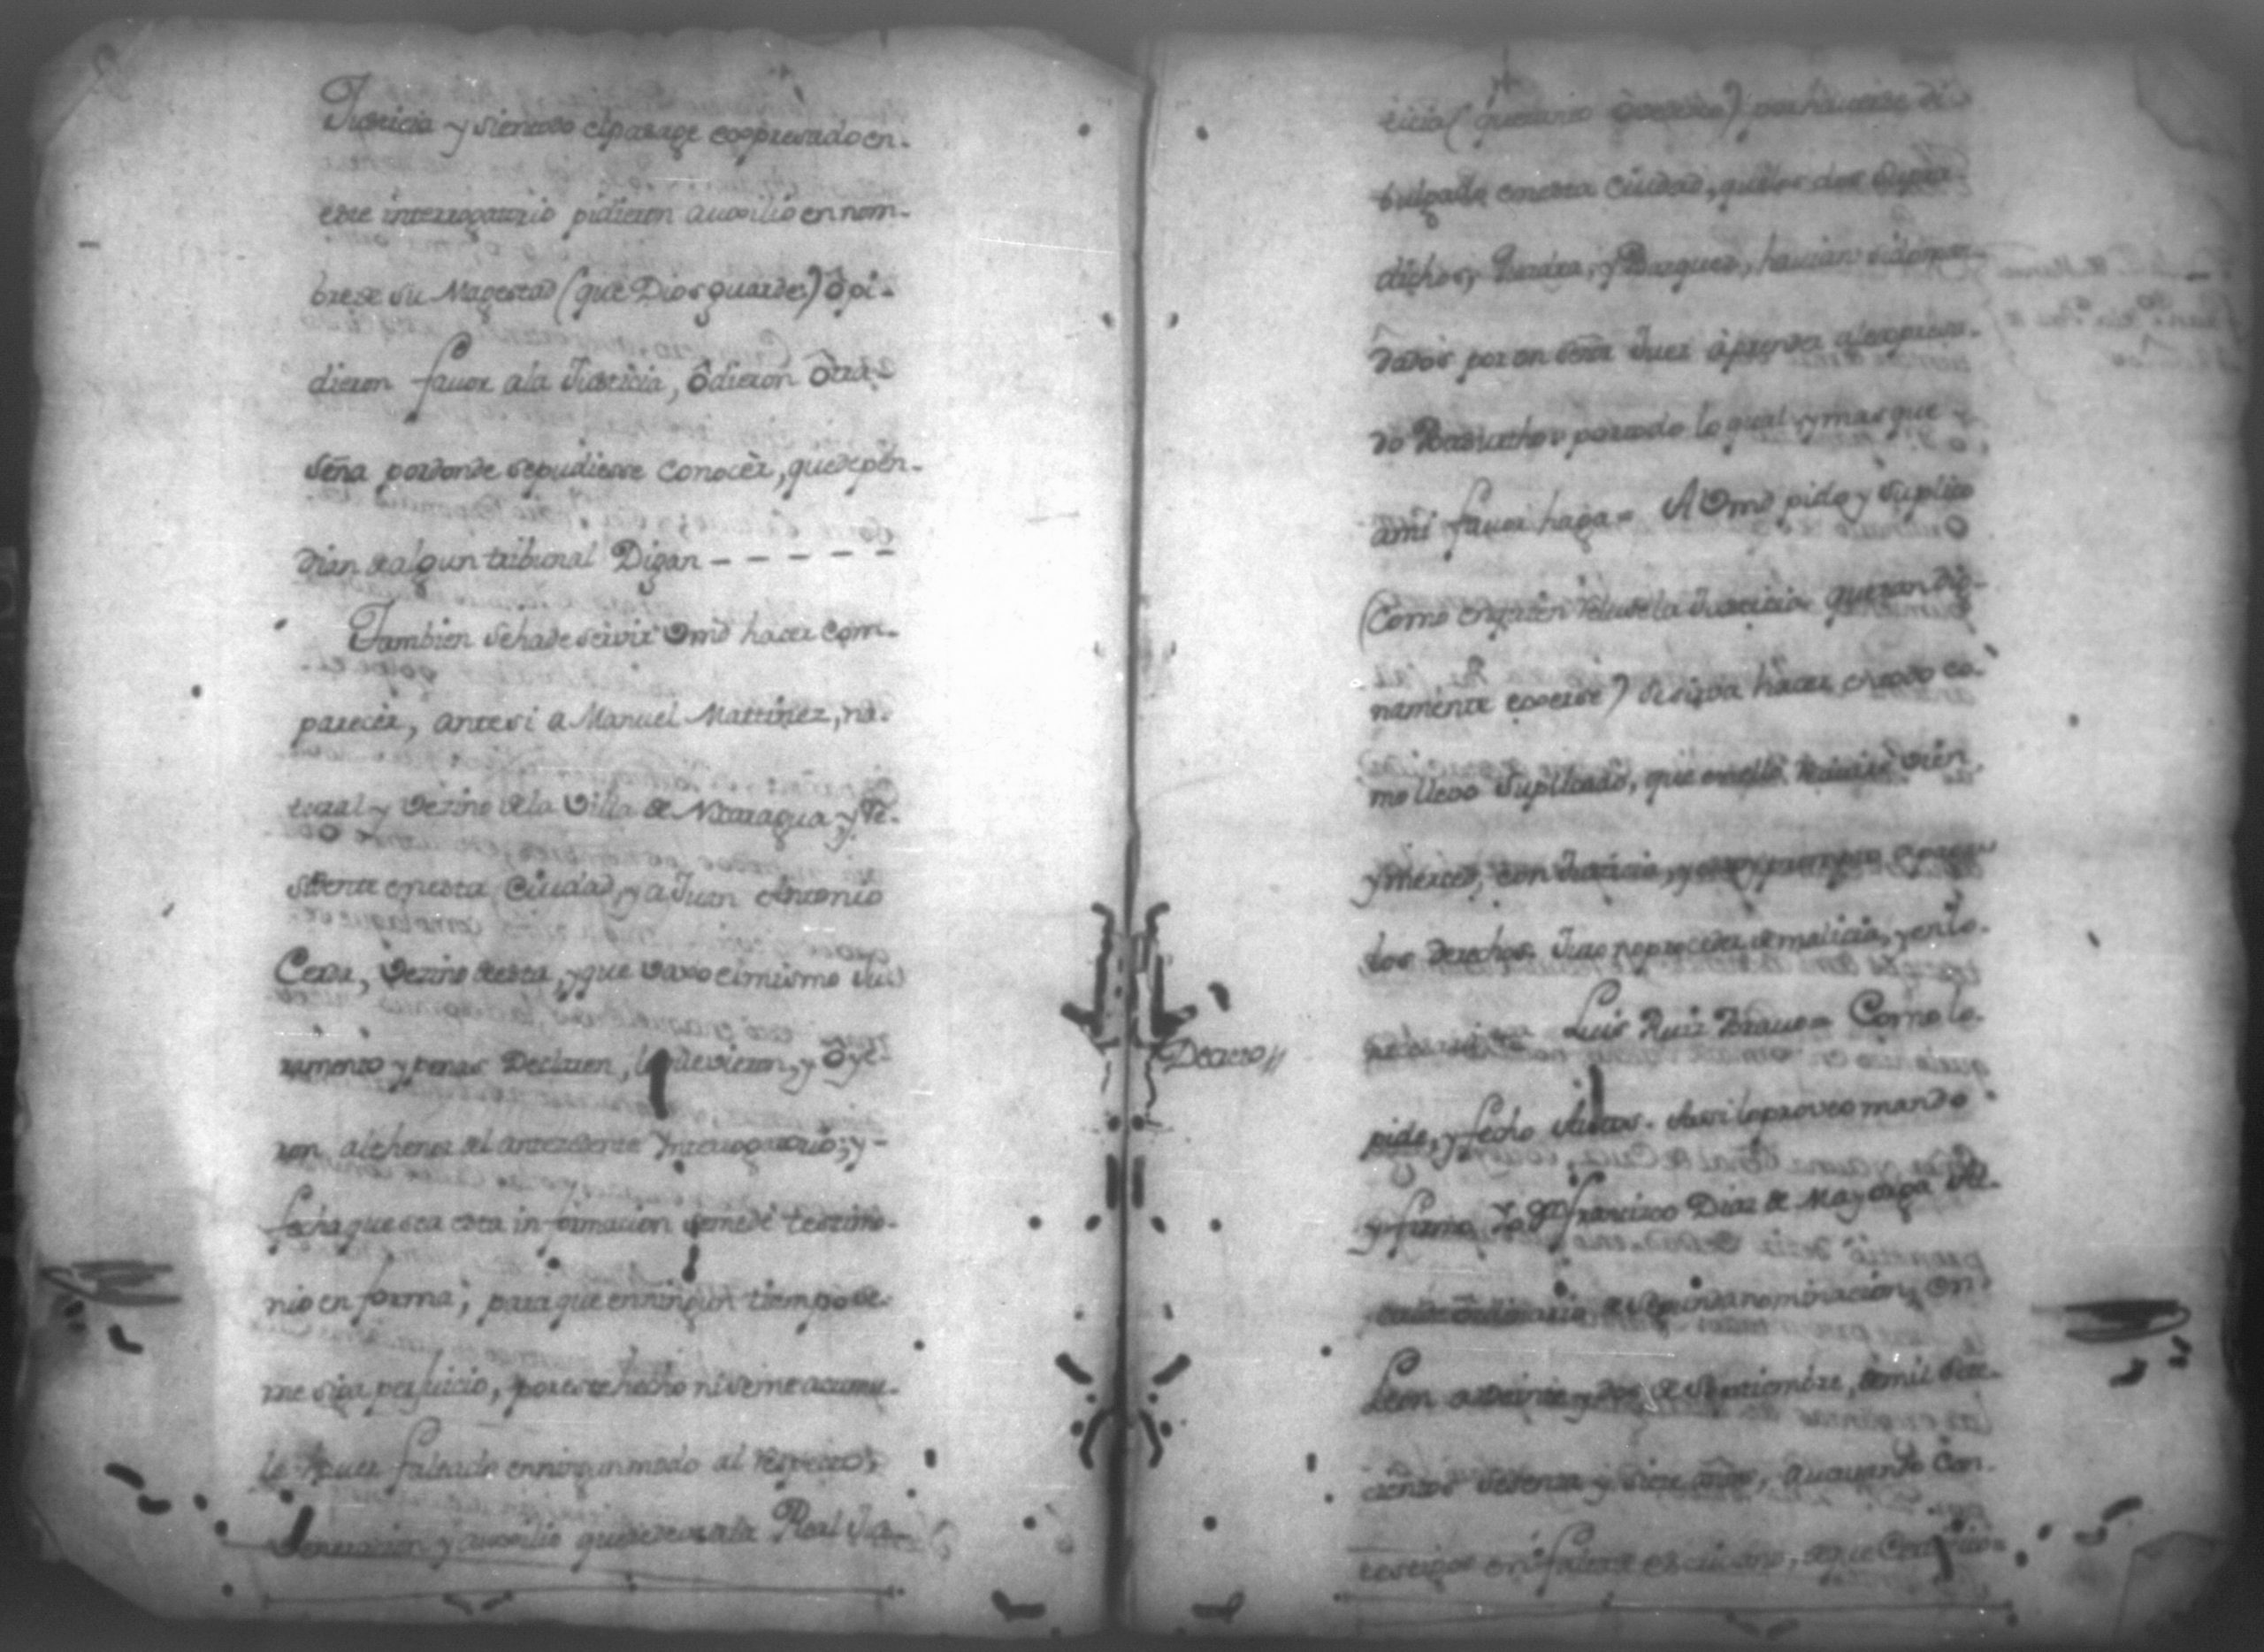 Justicia y siendo el parage expresado en-
este interrogatorio pidieron auxilio en nom-
bre de su Magestad (que Dios guarde) ô pi-
dieron favor a la Justicia, ô dieron ôtra
seña por donde se pudiesse conocèr, que depen-
dian de algun tribunal Digan - - - - -
Tambien se ha de servir Vmd hacer com-
parecèr, ante si a Manuel Mattinez, na-
tural y vezino de la Villa de Nicaragua y re-
sidente en esta Ciudad, y a Juan Antonio
Cerda, vezino de esta, y que vaxo el mismo Ju-
ramento y penas Declaren, lo que vieron, y ôye-
ron al thenor del antecedente Ynterrogatorio; y-
fecha que sea esta informacion se me dè testimo-
nio en forma, para que en ningun tiempo se-
me siga perjuicio, por este hecho ni se me acumu-
le haver faltado en ningun modo al respecto,
veneracion y auxilio que se deve a la Real Jus-
ticia (que tanto venero) por haverse di-
bulgado en esta Ciudad, que los dos supra-
dichos, y Bargues, havian sido man-
dados por un señor Juez â prender al expresa-
do por todo lo qual y mas que
a mi favor haga = A Vmd pido y suplico
(Como en quien reluse la Justicia que tan dig-
namente exerse) se sirva hacer en todo co-
mo llevo suplicado, que en ello recivirè vien
y merced, con Justicia,
los derechos. Juro no proceder de malicia, y en lo-
necesario Luis Ruiz Bravo = Como lo-
Decreto//
pide, y fecho Autos. Assi lo proveo mando
y firmo Yo Dn Francisco Diaz de Mayorga Al-
calde ôrdinario de segunda nominacion, en
Leon a veinte y dos de Septiembre, de mil sete-
cientos setenta y siete años, actuando con
testigos en falta de escrivano, de que Certifico=